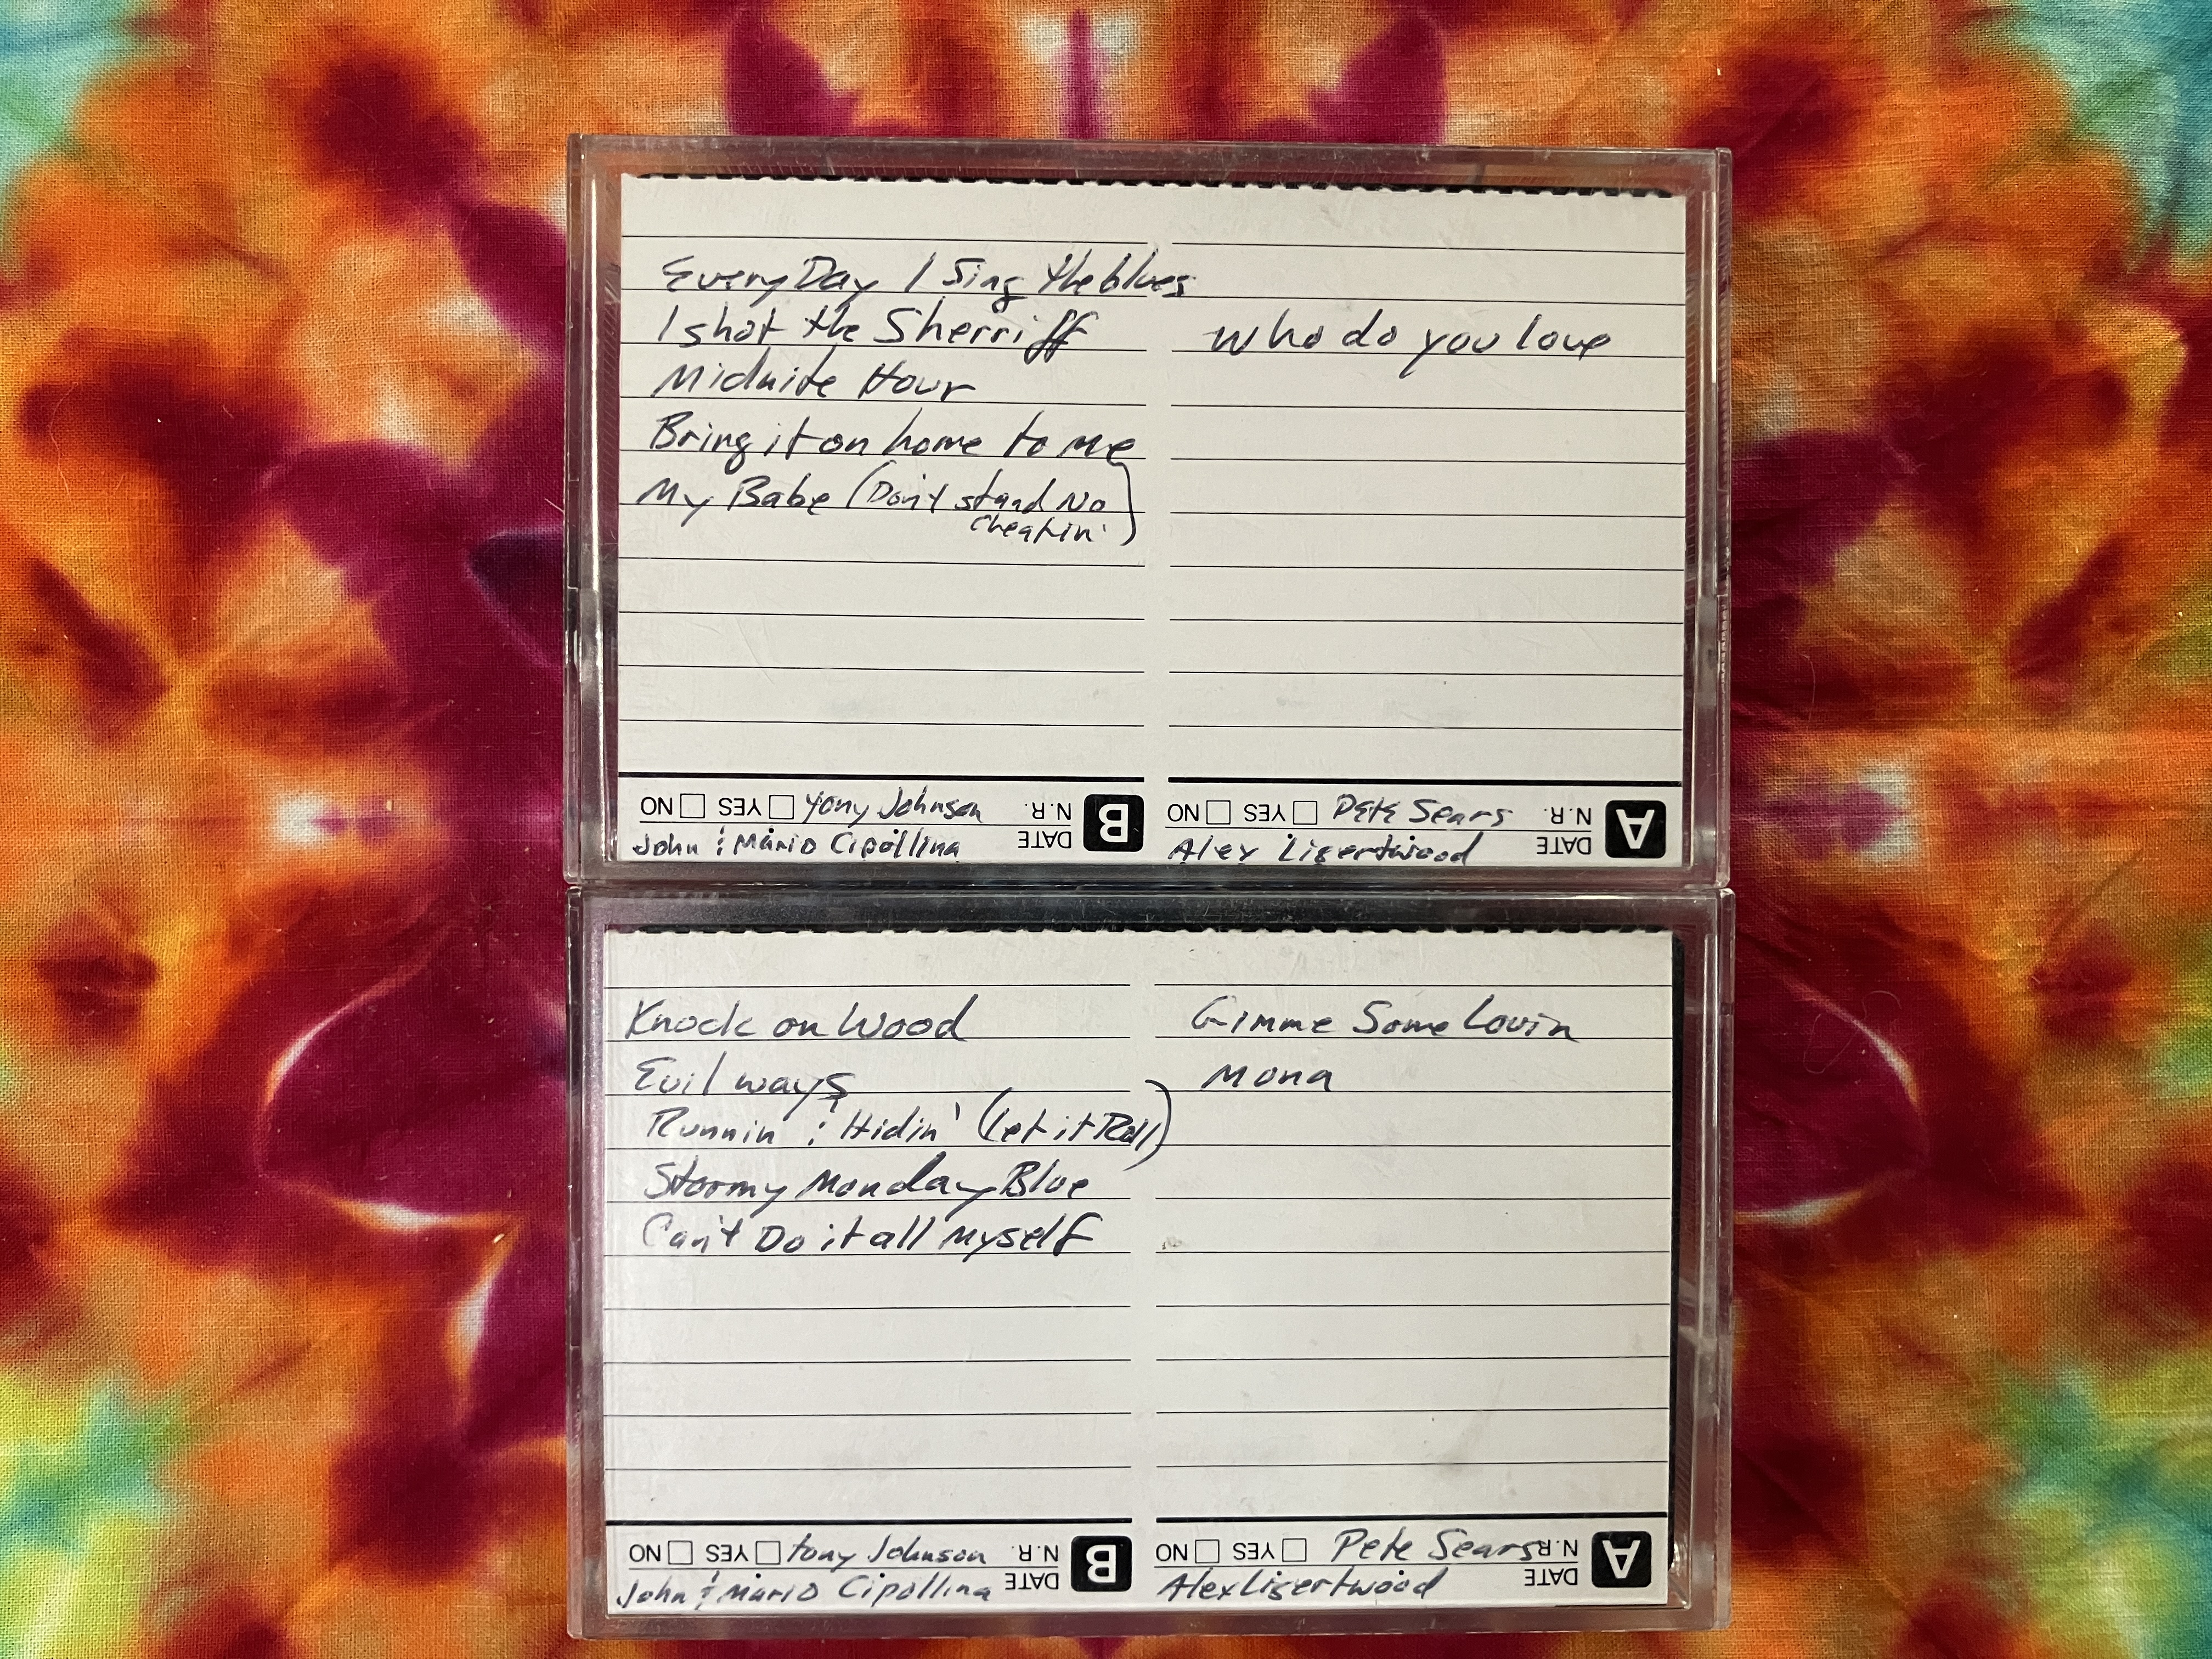 EveryDay I Sing the blues
I shot the Sherriff
Midnite Hour
Bring it on home to me
My Babe (Don't stand No
Cheatin')
Who do you love
NO YES Tony Johnson N.R. B
John & Mario Cipollina DATE
NO YES Pete Sears N.R. A
Alex Ligertwood DATE
Knock on Wood
Evil ways
Runnin & Hidin' (Let it Roll)
Stormy Monday Blue
Can't Do it all Myself
Gimme Some Lovin
Mona
NO YES tony Johnson N.R. B
John & Mario Cipollina DATE
NO YES Pete Sears N.R. A
Alex Ligertwood DATE